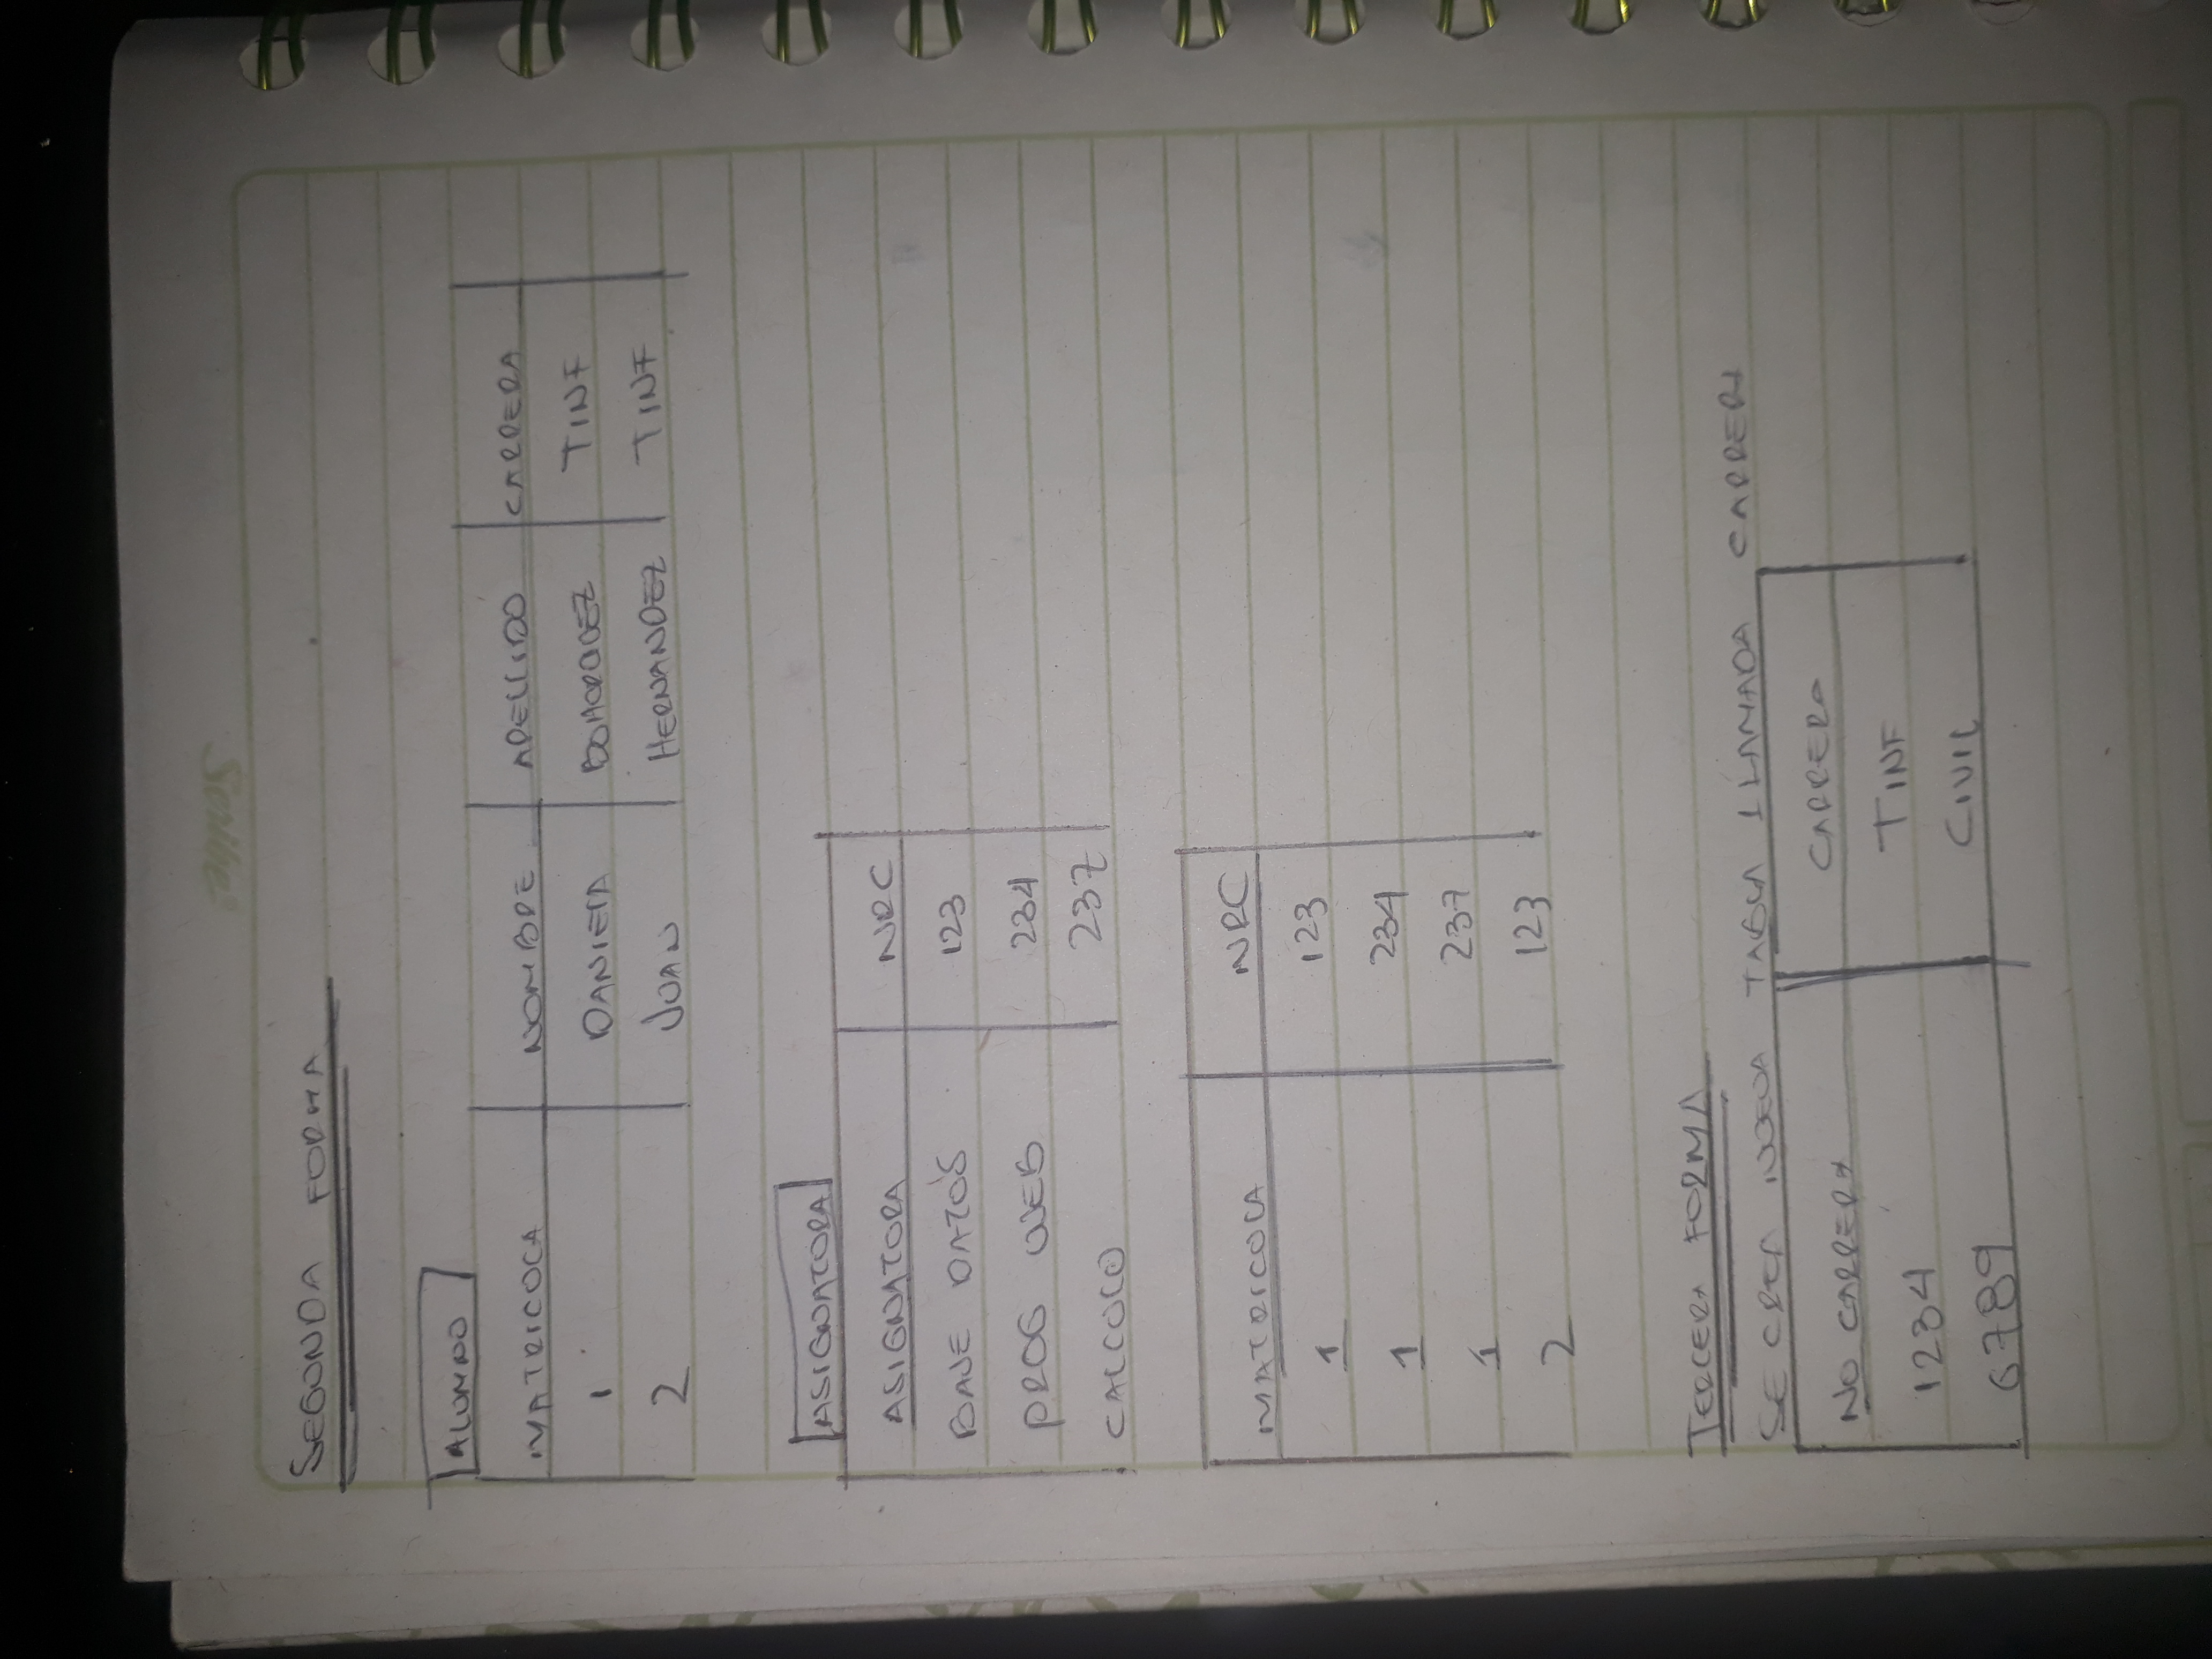 SEGUNDA FORMA
ALUMNO
MATRICULA NOMBRE APELLIDO CARRERA
1 DANIELA BOHORQUEZ TINF
2 JUAN HERNANDEZ TINF
ASIGNATURA
ASIGNATURA NRC
BASE DATOS 123
PROG WEB 234
CALCULO 237
MATRICULA NRC
1 123
1 234
1 237
2 123
TERCERA FORMA
SE CREA NUEVA TABLA 1 LLAMADA CARRERA
NO CARRERA CARRERA
1234 TINF
6789 CIVIL